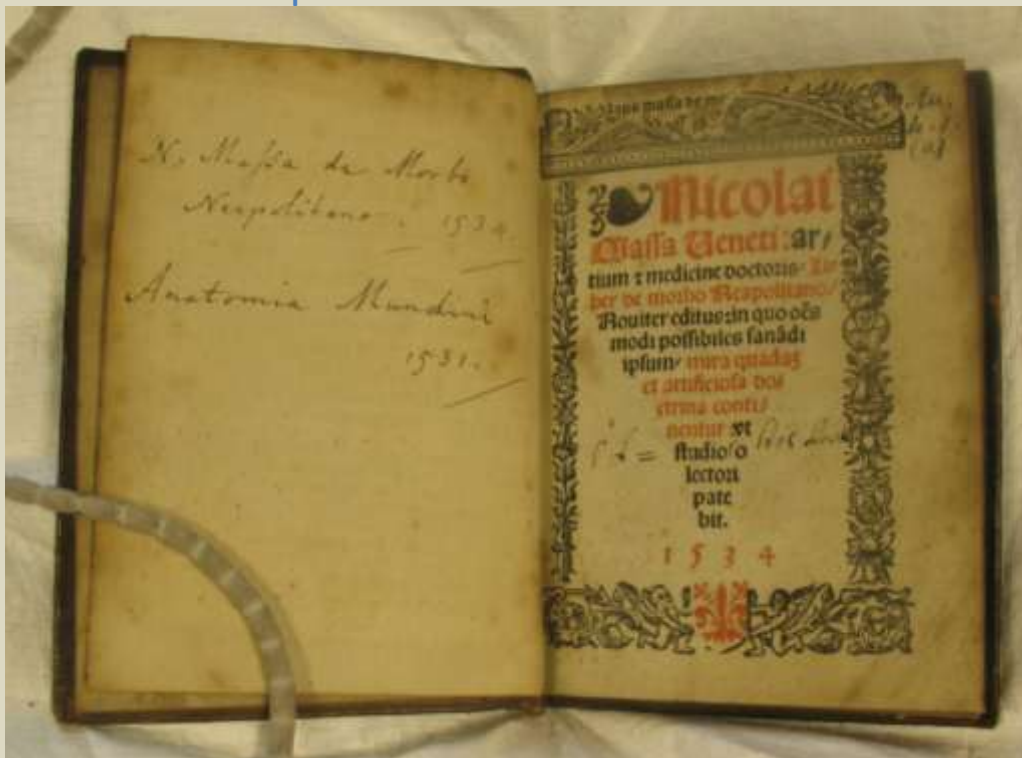 N. Maſsa de Morbo
Neapolitano. 1534.
Anatomia Mundini
1531.
Nicolai
Maſſa Veneti: ar/
tium ⁊ medicine doctoris/ Li/
ber de morbo Neapolitano/
Nouiter editus: in quo oēs
modi poſſibiles ſanādi
ipſum/ mira quadaꝫ
et artificioſa doc
trina conti/
nentur vt
ſtudioſo
lectori
pate
bit.
1534